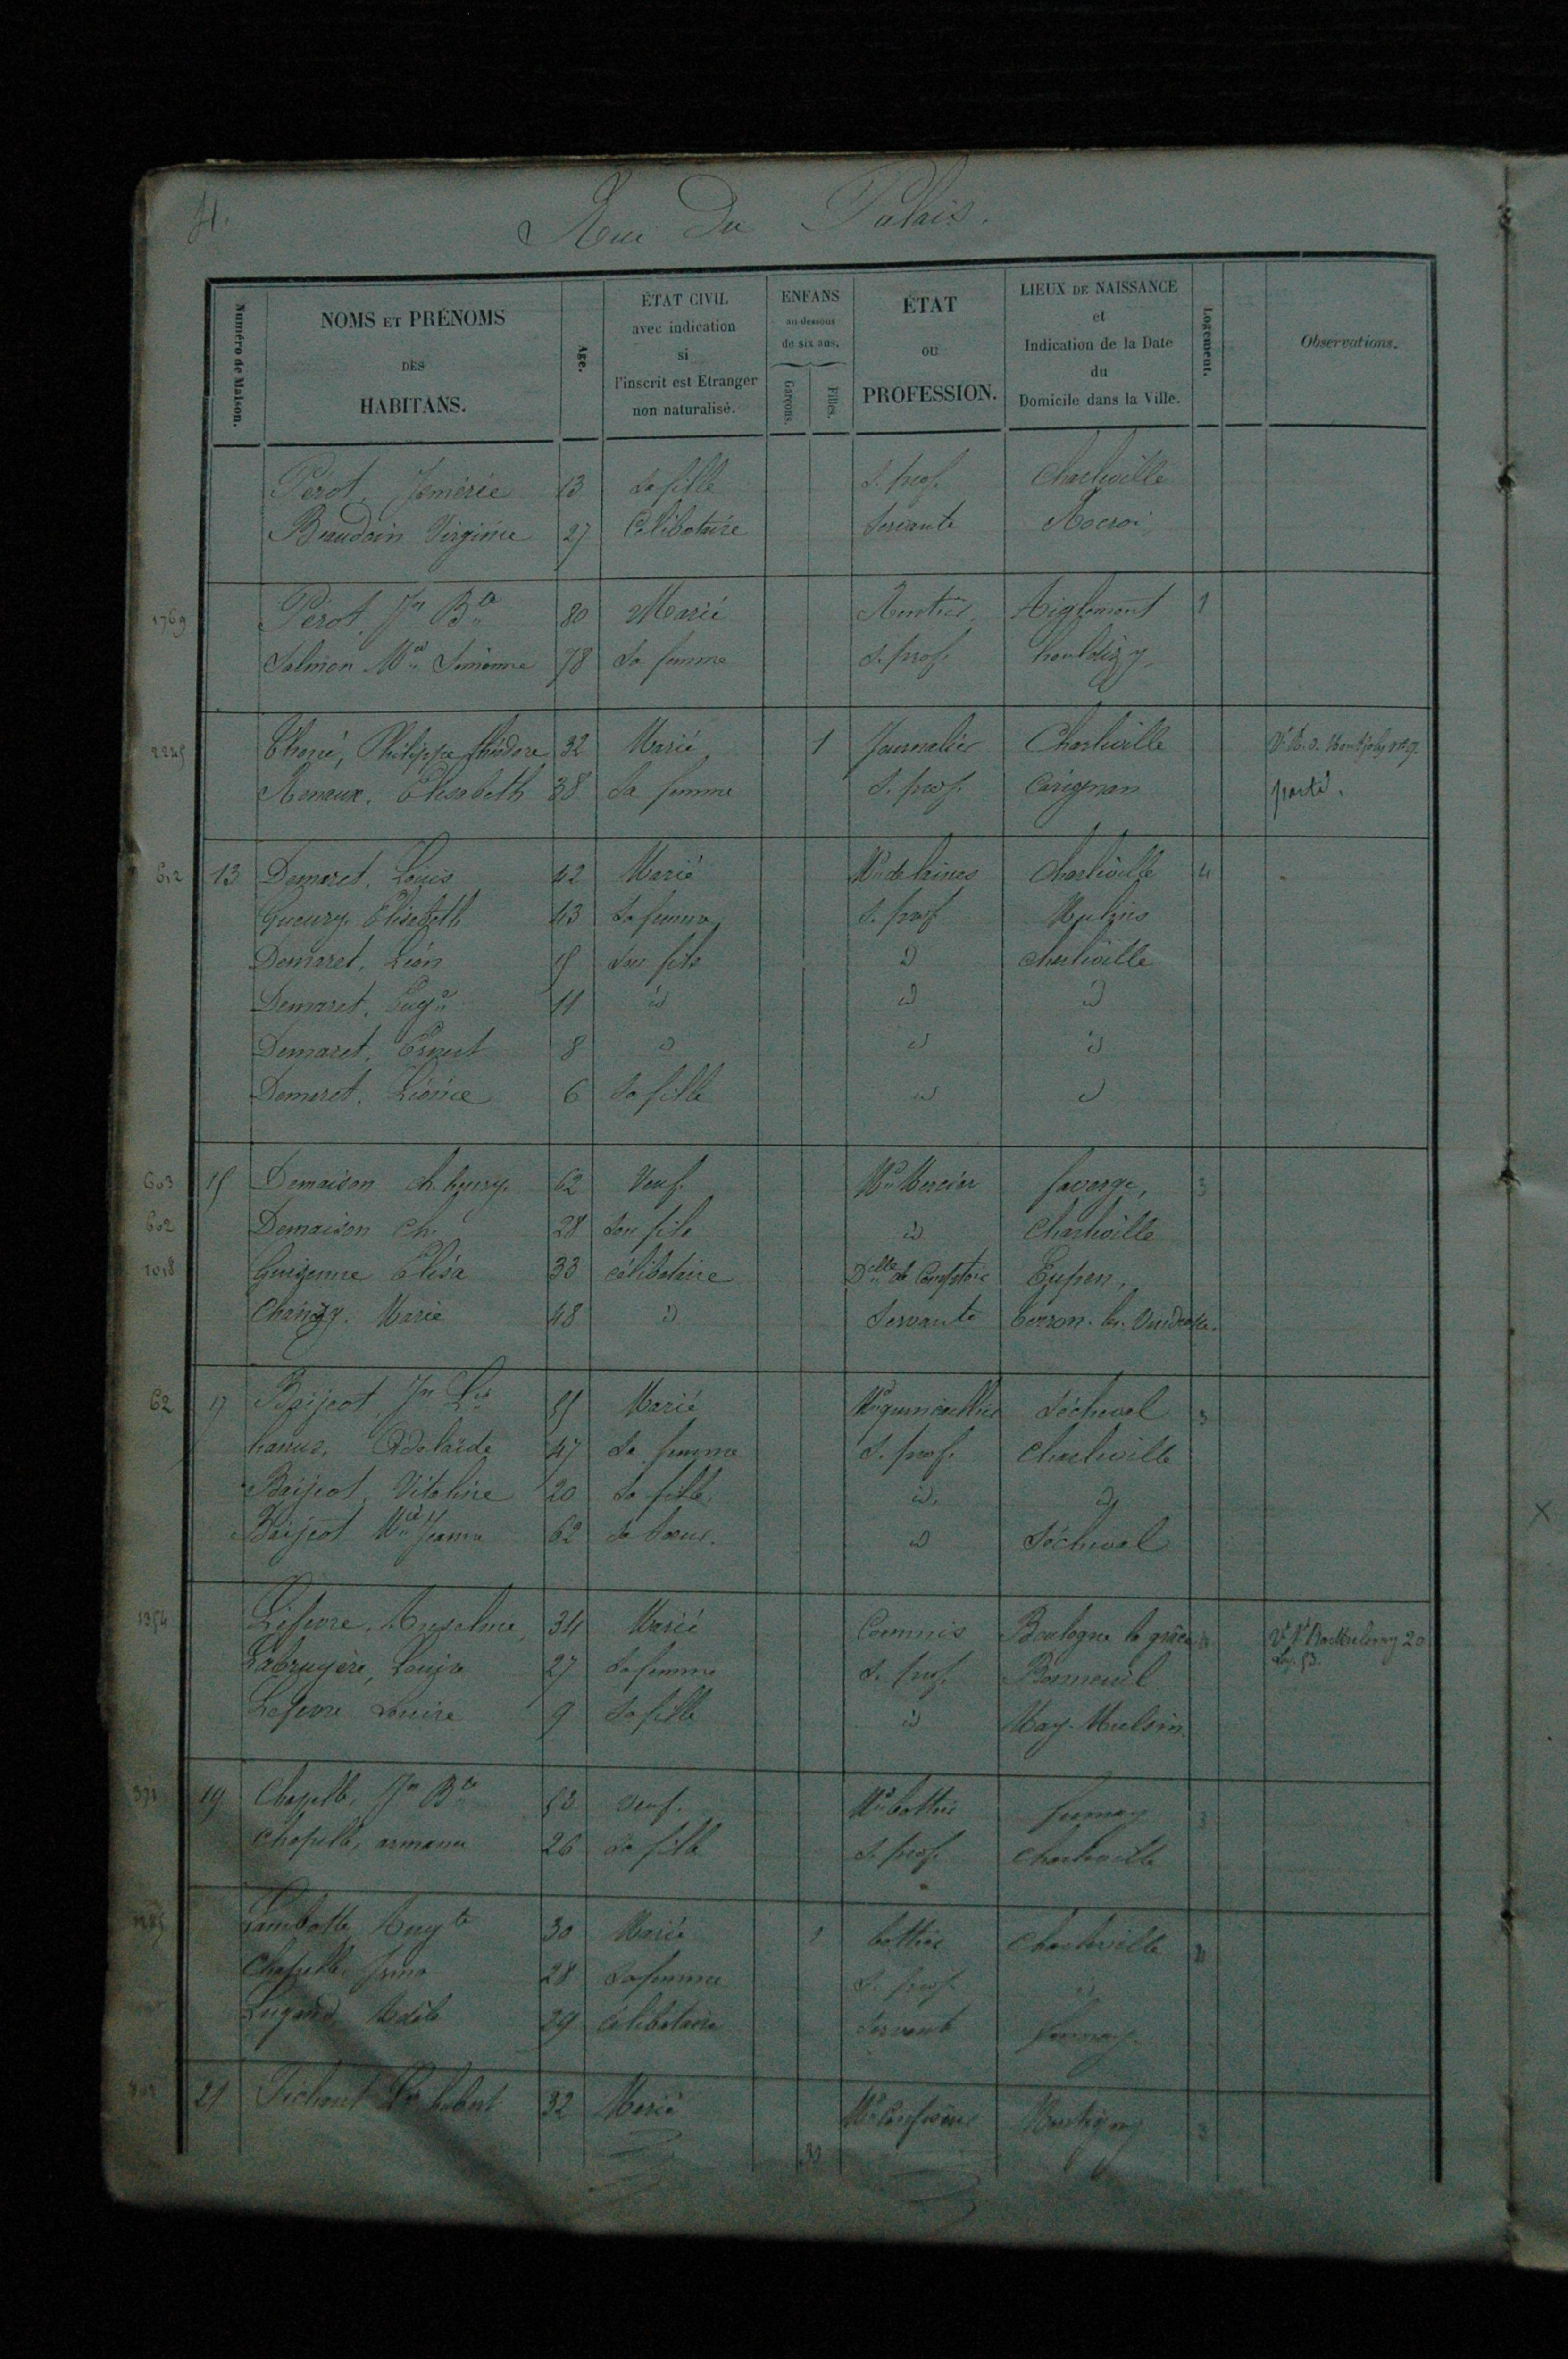 Rue du Palais.
Numéro de Maison. NOMS ET PRÉNOMS DES HABITANS. Age. ÉTAT CIVIL avec indication si l'inscrit est Etranger non naturalisé. ENFANS au-dessous de six ans. Garçons. Filles. ÉTAT OU PROFESSION. LIEUX DE NAISSANCE et Indication de la Date du Domicile dans la Ville. Logement. Observations.
Perot, 13 sa fille S. prof. Charleville
Beaudoin Virginie 27 Célibataire Servante Rocroi
1769 Perot, Jn Bte 80 Marié Rentier Aiglemont 1
Salmon Mie Simonne 78 Sa femme S. prof. houldizy
2245 Thoné, Philippe théodore 32 Marié 1 Journalier Charleville
Renaux, Elisabeth 38 Sa femme S. prof. Carignan parti.
612 13 Demaret, Louis 42 Marié Md de laines Charleville 4
Gueury, Elisabeth 43 Sa femme S. prof
Demaret, Léon 15 son fils id Charleville
Demaret, Eugne 11 id id id
Demaret, Ernest 8 id id id
Demaret, Léonie 6 Sa fille id id
603 15 Demaison ch. henry 62 Veuf Md Mercier faverge, 3
602 Demaison Ch. 28 Son fils id Charleville
1018 Elisa 33 célibataire Dlle de Comptoir Eupen,
Chanzy. Marie 48 id Servante
62 17 Baijot, Jn Ls 55 Marié Md quincaillier Sécheval 3
hanus, Adelaïde 47 Sa femme S. prof. Charleville
Baijot, Vitaline 20 Sa fille, id. id
Baijot Mie Jeanne 62 Sa Soeur. id Sécheval
1354 Lefevre, Anselme, 34 Marié Commis Boulogne la grâce
Labruyère, Louise 27 Sa femme S. prof. Bonneuil
Lefevre Louise 9 Sa fille id
19 Chapelle, Jn Bte Veuf. Md bottier fumay 3
Chapelle, 26 Sa fille S. prof. Charleville
Lambotte, Augte 30 Marié 1 bottier Charleville
Chapelle, Irma 28 Sa femme S. prof. id
Adèle 29 Célibataire Servante fumay
21 hubert 32 Marié Montigny 3